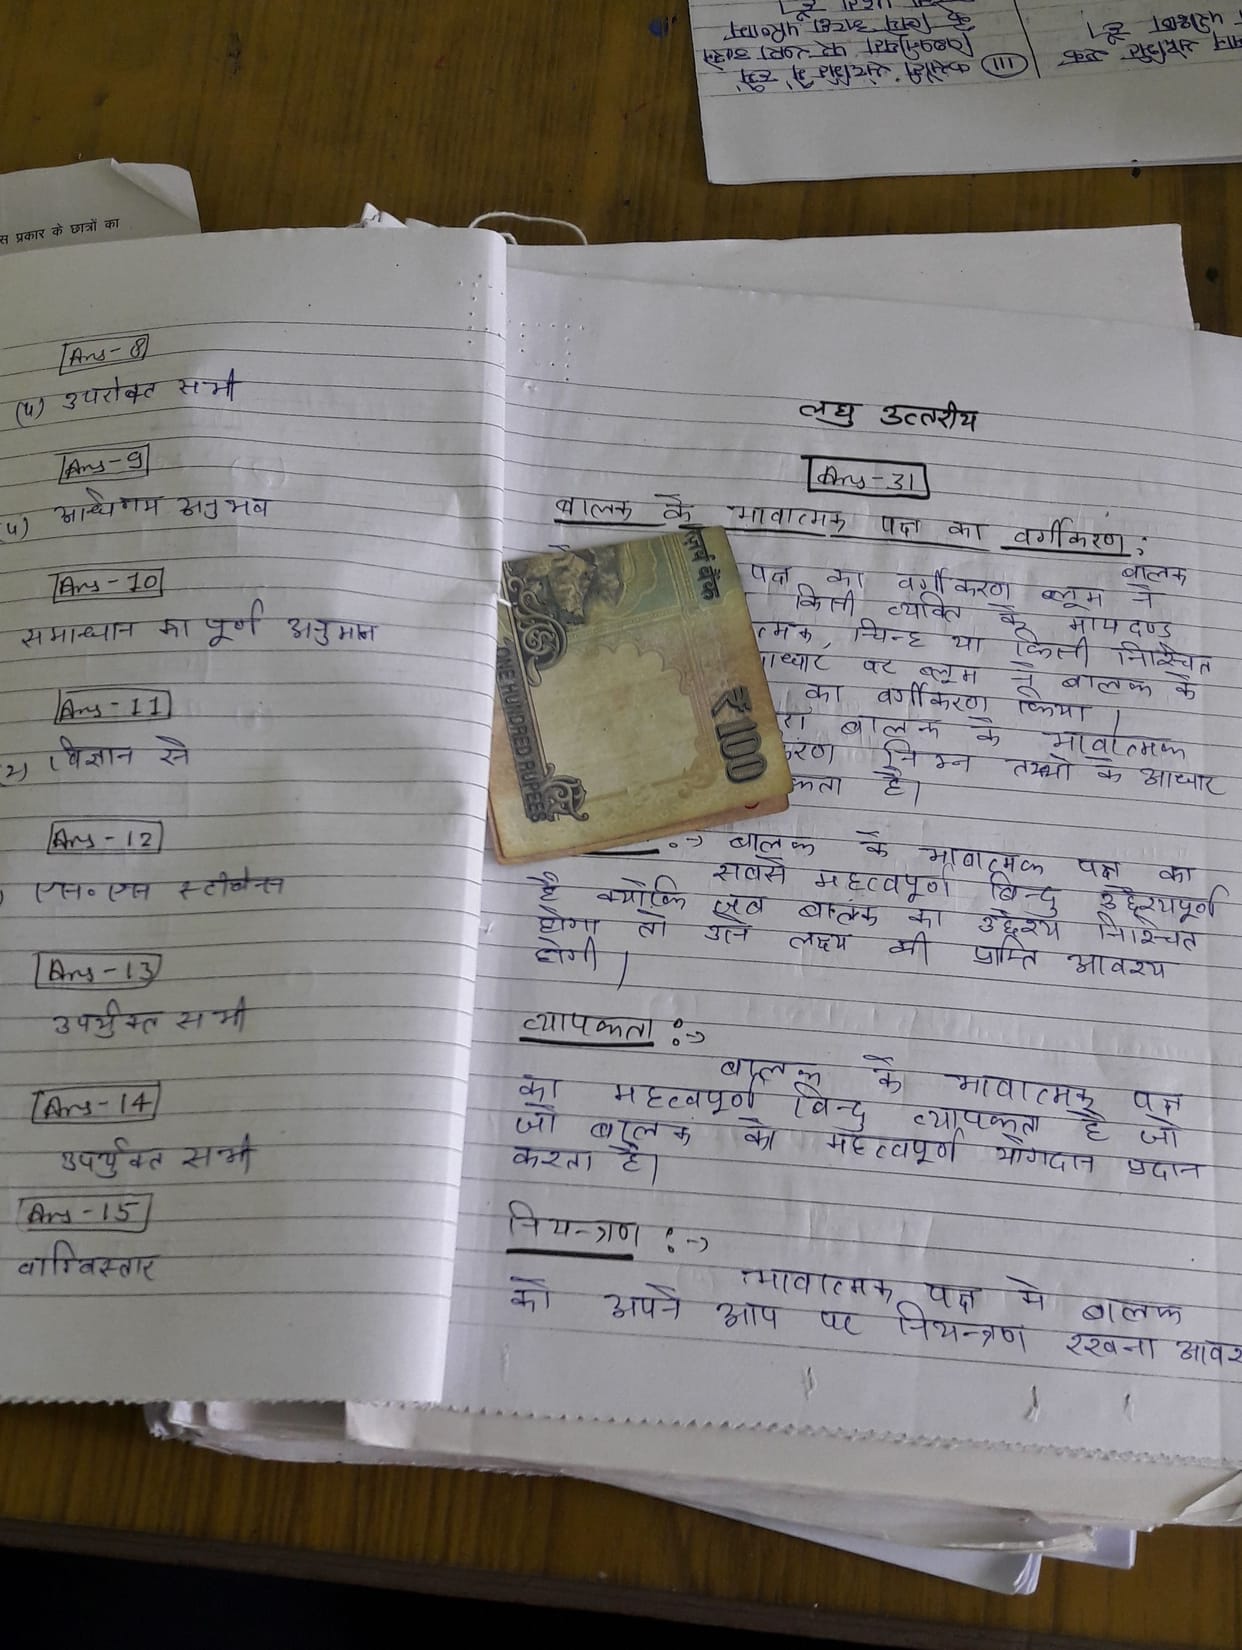 स प्रकार के छात्रों का
Ans-8
(4) उपरोक्त सभी
Ans-9
(4) अधिगम अनुभव
Ans-10
समाधान का पूर्ण अनुमान
Ans-11
2) विज्ञान से
Ans-12
एस॰एस स्टीवेन्स
Ans-13
उपर्युक्त सभी
Ans-14
उपर्युक्त सभी
Ans-15
वाग्विस्तार
लघु उत्तरीय
Ans-31
बालक के भावात्मक पक्ष का वर्गीकरण :
बालक
पक्ष का वर्गीकरण ब्लूम ने
किसी व्यक्ति के मापदण्ड
त्मक, चिन्ह या किसी निश्चित
आधार पर ब्लूम ने बालक के
का वर्गीकरण किया।
रा बालक के भावात्मक
करण निम्न तथ्यो के आधार
कता है।
:→ बालक के भावात्मक पक्ष का
सबसे महत्वपूर्ण बिन्दु उद्देश्यपूर्ण
है क्योकि जब बालक का उद्देश्य निश्चित
होगा तो उसे लक्ष्य की प्राप्ति आवश्य
होगी।
व्यापकता :→
बालक के भावात्मक पक्ष
का महत्वपूर्ण बिन्दु व्यापकता है जो
जो बालक को महत्वपूर्ण योगदान प्रदान
करता है।
नियन्त्रण :→
भावात्मक पक्ष मे बालक
को अपने आप पर नियन्त्रण रखना आवश
रिजर्व बैंक
ONE HUNDRED RUPEES
₹100